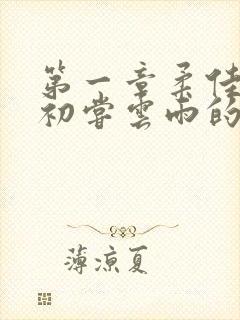 第一章柔佳
初尝云雨的
薄凉夏